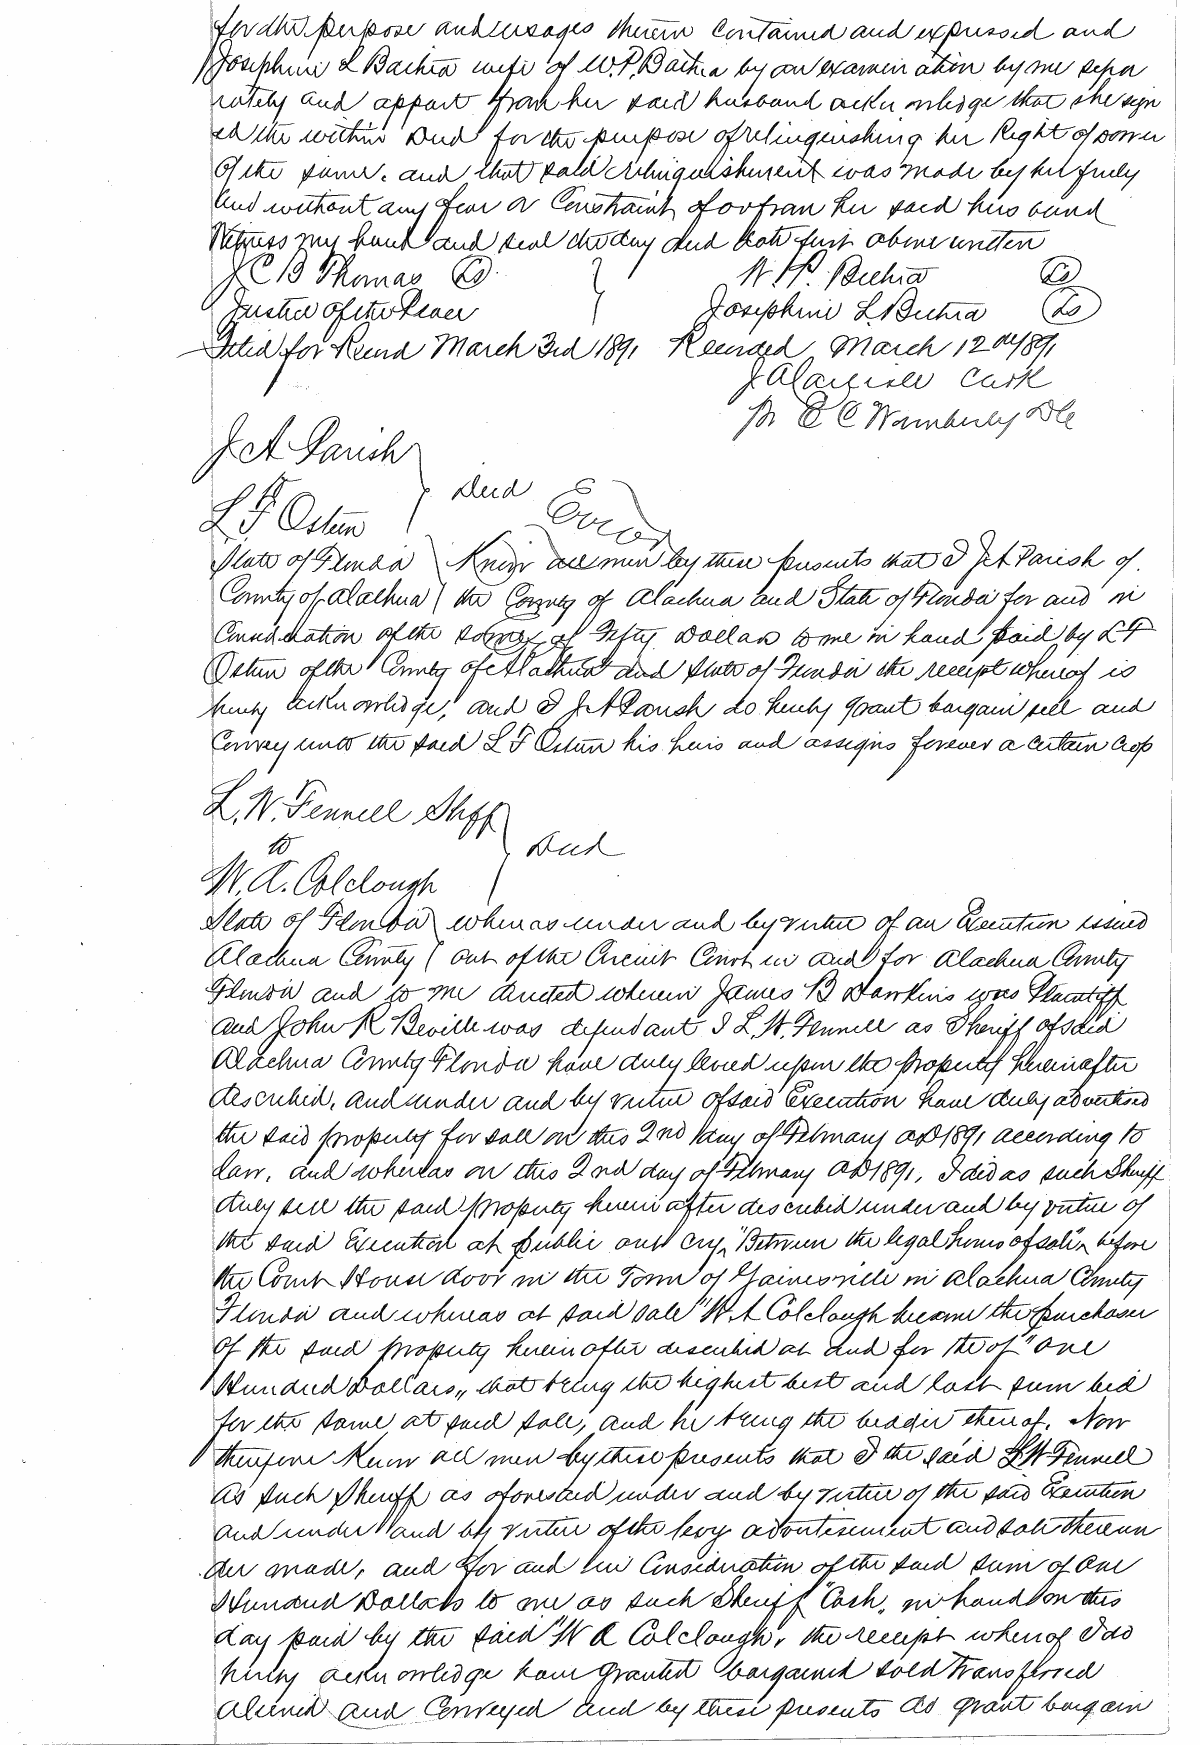 for the purpose and usages therein contained and expressed and
Josephine L Bethea wife of W.P. Bethea by an examination by me sepa
rately and appart from her said husband acknowledge that she sign
ed the within Deed for the purpose of relinquishing her Right of Dower
of the same. and that said relinquishment was made by her freely
and without any fear or Constraint of or from her said husband
Witness my hand and seal the day and date first above written
J C B Thomas LS W. P. Bethea LS
Justice of the Peace Josephine L. Bethea LS
Filed for Record March 3rd 1891 Recorded March 12th 1891
J A Carlisle Clerk
pr E C Wamberly D C
J A Parish
to Deed Error
L F Osteen
State of Florida Know all men by these presents that I J A Parish of
County of Alachua the County of Alachua and State of Florida for and in
Consideration of the some of Fifty Dollars to me in hand paid by L F
Osteen of the County of Alachua and State of Florida the receipt whereof is
hereby acknowledge, and I J A Parish do hereby grant bargain sell and
Convey unto the said L F Osteen his heirs and assigns forever a certain crop
L. W. Fennell Shff
to Deed
W. A. Colclough
State of Florida whereas under and by virtue of an Execution issued
Alachua County out of the Circuit Court in and for Alachua County
Florida and to me directed wherein James B Dawkins was Plaintiff
and John R Beville was defendant I L. W. Fennell as Sheriff of said
Alachua County Florida have duly levied upon the property hereinafter
described, and under and by virtue of said Execution have duly advertised
the said property for sale on this 2nd day of February AD 1891 according to
law, and whereas on this 2nd day of February AD 1891, I did as such Sheriff
duly sell the said property herein after described under and by virtue of
the said Execution at public out cry, "Between the legal hours of sale" before
the Court House door in the Town of Gainesville in Alachua County
Florida and whereas at said sale "W. A Colclough became the purchaser
of the said property herein after described at and for the of "One
Hundred Dollars,, that being the highest best and last sum bid
for the same at said sale, and he being the beadir thereof. Now
therefore Know all men by these presents that I the said L W Fennell
as such Sheriff as aforesaid under and by virtue of the said Execution
and under and by virtue of the levy advertisement and sale thereun
der made, and for and in Consideration of the said sum of One
Hundred Dollars to me as such Sheriff "Cash, in hand on this
day paid by the said "W A Colclough, the receipt whereof I do
hereby acknowledge have granted bargained sold transferred
aliened and Conveyed and by these presents do grant bargain